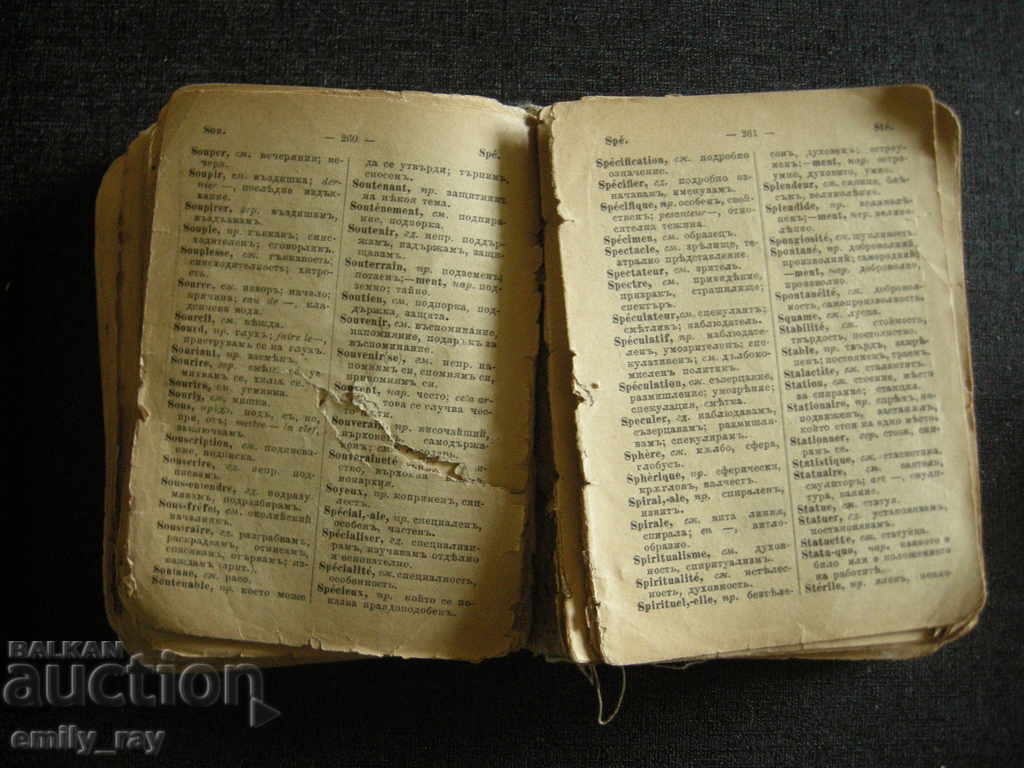 Sou.
— 260 —
Spé.
Souper, см. вечерянии; ве-
черя.
Soupir, см. въздишка; der-
nier —, послѣдно издъх-
вание.
Soupirer, гр. въздишамъ,
въздъхвамъ.
Souple, пр. гъвкавъ; снис-
ходителенъ; сговорливъ.
Souplesse, сж. гъвкавость;
снисходителность; хитрость.
Source, сж. изворъ; начало;
причина; eau de —, кла-
денчова вода.
Sourcil, см. вѣжда.
Sourd, пр. глухъ; faire le —,
приструвамъ се на глухъ.
Souriant, пр.
Sourire,
Sourire, см. усмивка.
Souris, сж. мишка.
Sous, прѣдл. подъ, съ, по,
при, отъ; mettre — la clef,
заключвамъ.
Souscription, сж. подписва-
ние, подписка.
Souscrire, гл. непр. под-
писвамъ.
Sous-entendre, гл. подразу-
мѣвамъ, подразбирамъ.
Sous-préfet, см. околийский
началникъ.
Soustraire, гл. изграбвамъ,
раскрадвамъ, отнисамъ,
Soutane, сж. расо.
Soutenable, пр. което може
да се утвърди; търпимъ,
сносенъ.
Soutenant, пр. защитникъ
на нѣкоя тема.
Soutènement, см. подпира-
ние, подпорка.
Soutenir, гл. непр. поддър-
жамъ, надържамъ, защи-
щавамъ.
Souterrain, пр. подземенъ,
потаенъ; —ment, нар. под-
земно; тайно.
Soutien, см. подпорка, под-
държка, защита.
Souvenir, см. въспоминание,
напомняние, подаръкъ за
въспоминание.
Souvenir(se), гл. непр. на-
помнямъ си, спомнямъ си,
припомнямъ си.
Souvent, нар. често;
това се случва чес-
Souverain, пр. височайший,
върховенъ; самодържа-
Souveraineté
ство, върховна
монархия.
Soyeux, пр. копринен,
Spécial,-ale, пр. специаленъ,
особенъ, частенъ.
Spécialiser, гл. специализи-
рамъ, изучавамъ отдѣлно
и основателно.
Spécialité, сж. специалность,
особенность.
Spécieux, пр. който се по-
казва правдоподобенъ.
Spé.
— 261 —
Sté.
Spécification, сж. подробно
означение.
Spécifier, гл. подробно оз-
начавамъ, именувамъ.
Spécifique, пр. особенъ, свой-
ственъ; pesanteur —, отно-
сителна тежина.
Spécimen, см. образецъ.
Spectacle, см. зрѣлище, те-
атрално прѣдставление.
Spectateur, см. зрителъ.
Spectre, см. привидѣние,
призракъ, страшилище;
спектъръ.
Spéculateur, см. спекулантъ;
смѣтливъ; наблюдатель.
Spéculatif, пр. наблюдате-
ленъ, умозрителенъ; спе-
кулативенъ; см. дълбоко-
мисленъ политикъ.
Spéculation, сж. съзерцание,
размишление; умозрѣние;
спекулация, смѣтка.
Speculer, гл. наблюдавамъ,
съзерцавамъ; размиша-
вамъ; спекулирамъ.
Sphère, сж. кълбо, сфера,
глобусъ.
Sphérique, пр. сферически,
кръгълъ, валчестъ.
Spiral,-ale, пр. спираленъ,
извитъ.
Spirale, сж. вита линия,
спирала; en —, витло-
образно.
Spiritualisme, см. духов-
ность, спиритуализмъ.
Spiritualité, сж. нетѣлес-
ность, духовность.
Spirituel,-elle, пр. безтѣле-
сенъ, духовенъ; остроу-
менъ; —ment, нар. остро-
умно, духовито, умно.
Splendeur, сж. сияние, блѣ-
съкъ, великолѣпие.
Splendide, пр. великолѣ-
пенъ; —ment, нар. велико-
лѣпно.
Spongiosité, сж. шупливость.
Spontané, пр. доброволенъ,
произволенъ; самороденъ;
—ment, нар. доброволно,
произволно.
Spontanéité, сж. доброво-
лность, самопроизволность.
Squame, сж. луспа.
Stabilité, сж. стойность,
твърдость, постоянство.
Stable, пр. твърдъ,
неменъ; постояненъ, траенъ.
Stalactite, сж.
Station, сж. стоение, мѣсто
на спирание; станция.
Stationnaire, пр. спрѣнъ, не-
подвиженъ,
който стои на едно мѣсто.
Stationner, гр. стоя,
Statistique, сж. статистика.
Statuaire, см. ваятель,
скулпторъ; art —, скулп-
тура, ваяние.
Statue, сж. статуя.
Statuer, гл. установявамъ,
постановямъ.
Statuette, сж. статуйка.
Statu-quo, нар. каквото е
било или въ положението
на работитѣ.
Stérile, пр.
BALKAN
auction
emily_ray